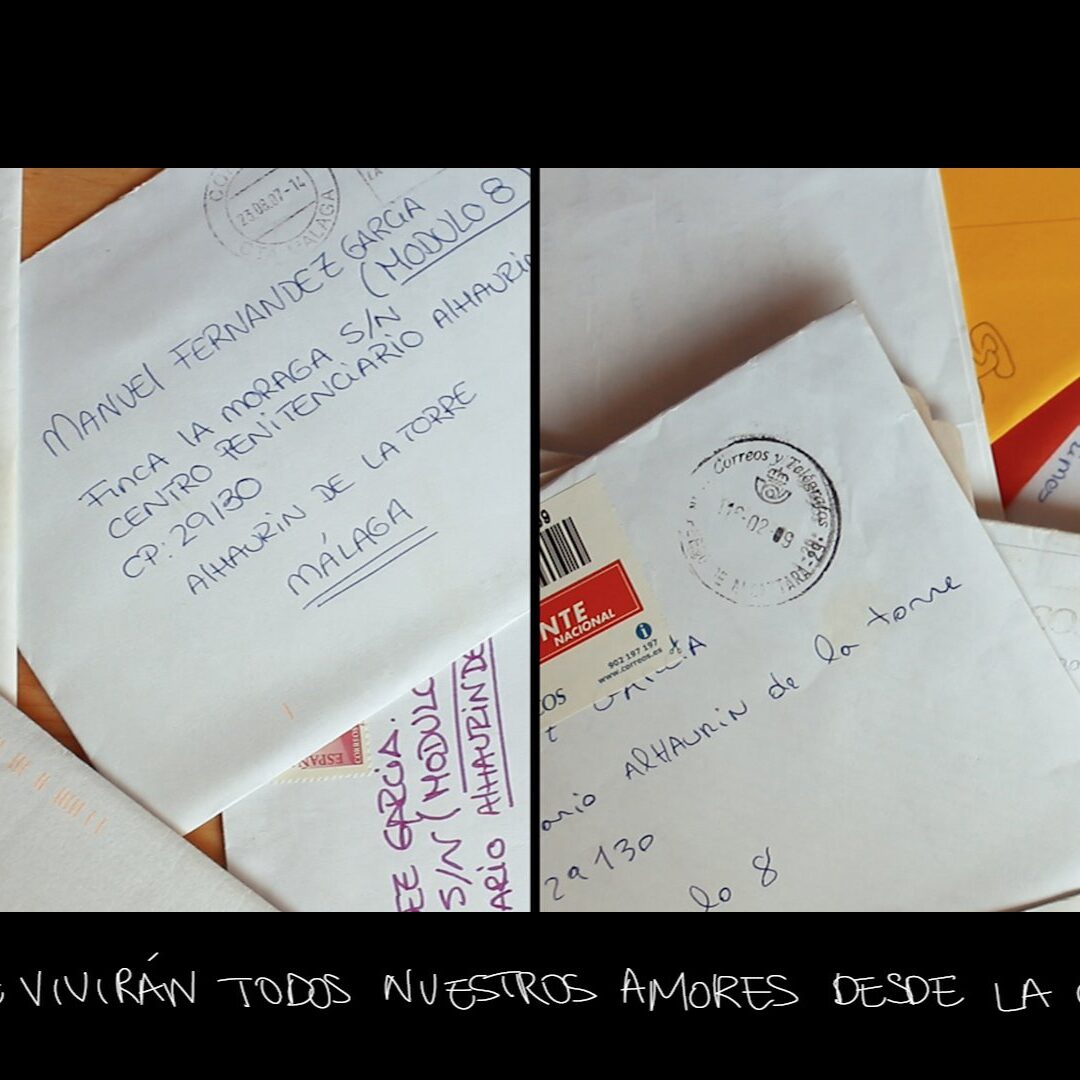 23.08.07-14
MÁLAGA
MANUEL FERNANDEZ GARCIA
(MODULO 8)
FINCA LA MORAGA S/N
CENTRO PENITENCIARIO ALHAURIN
CP: 29130
ALHAURIN DE LA TORRE
MÁLAGA
CORREOS
ESPAÑA
EZ GARCIA.
S/N (MODULO
ARIO ALHAURIN DE
Correos y Telégrafos
-02-
DE ALCANTARA-29-
NTE
NACIONAL
902 197 197
www.correos.es
OS
ALHAURIN de la torre
ario
29130
lo 8
VIVIRÁN TODOS NUESTROS AMORES DESDE LA